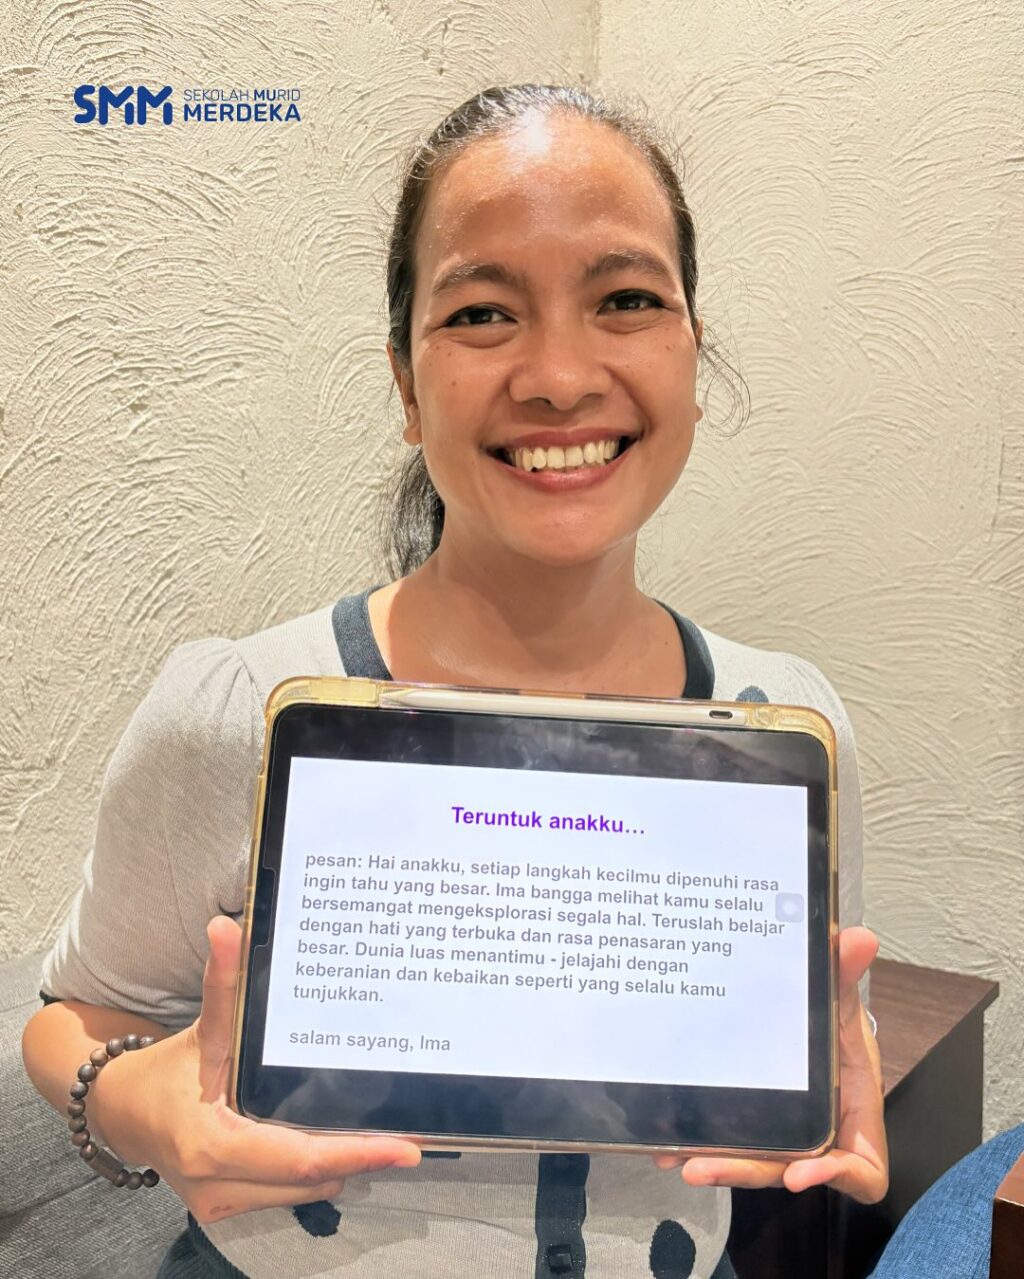 SMM SEKOLAH MURID
MERDEKA
Teruntuk anakku...
pesan: Hai anakku, setiap langkah kecilmu dipenuhi rasa
ingin tahu yang besar. Ima bangga melihat kamu selalu
bersemangat mengeksplorasi segala hal. Teruslah belajar
dengan hati yang terbuka dan rasa penasaran yang
besar. Dunia luas menantimu - jelajahi dengan
keberanian dan kebaikan seperti yang selalu kamu
tunjukkan.
salam sayang, Ima